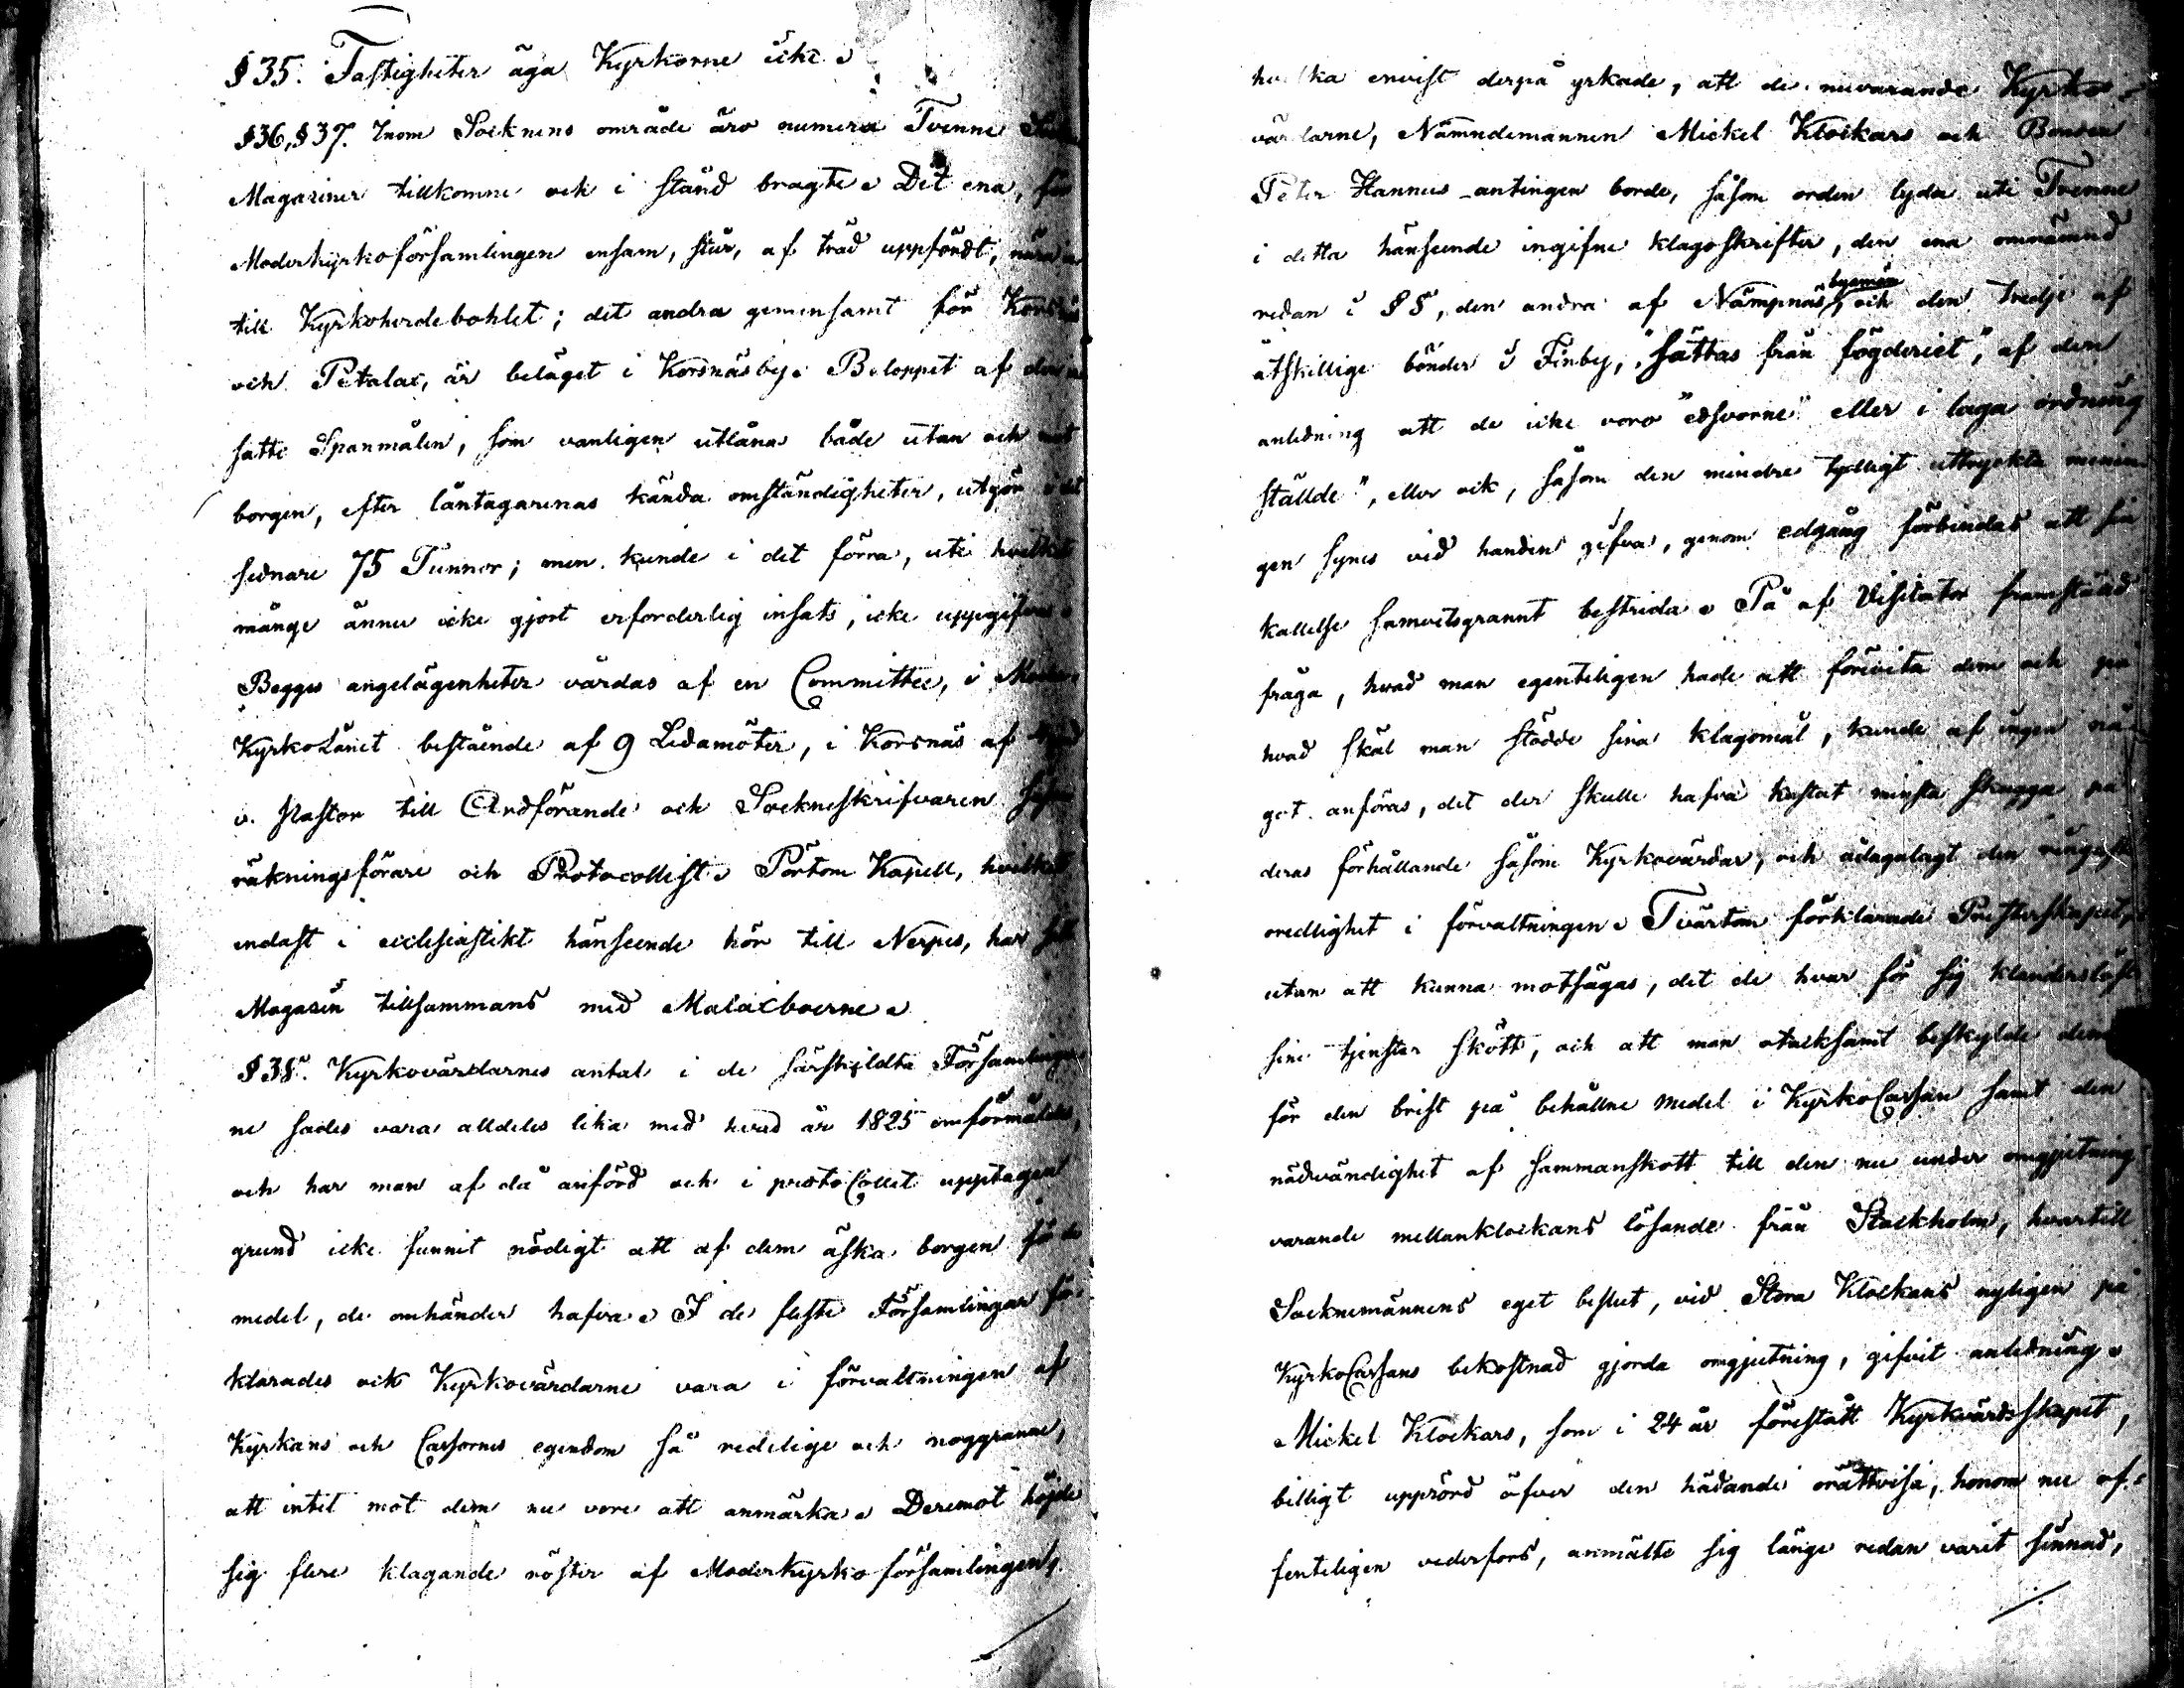 § 35. Fastigheter äga Kyrkorne icke.
§ 36, § 37. Inom Socknens område äro numera Tvenne
Magasiner tillkomne och i stånd bragte. Det ena, för
Moderkyrkoförsamlingen ensam, står, af träd uppfördt, nära in
till Kyrkoherdebohlet; det andra gemensamt för Korsnäs
och Petalax, är beläget i Korsnäs by. Beloppet af den in
satte Spanmålen, som vanligen utlånas både utan och mot
borgen, efter låntagarenas kända omständigheter, utgör i det
sednare 75 Tunnor; men kunde i det förra, uti hvilket
månge ännu icke gjort erforderlig insats, icke uppgifvas.
Begges angelägenheter vårdas af en Committee, i Moder
KyrkoLänet bestående af 9 Ledamöter, i Korsnäs af
v. Pastor till Ordförande och Sockneskrifvaren såsom
räkningsförare och Protocollist. Pörtom Kapell, hvilket
endast i ecclesiastikt hänseende hör till Nerpes, har sitt
Magasin tillsammans med Malaxboerne.
§ 38. Kyrkovärdarnes antal i de särskildta Församlingar
ne sades vara alldeles lika med hvad år 1825 omförmäldes,
och har man af då anförd och i protoCollet upptagen
grund icke funnit nödigt att af dem äska borgen för de
medel, de omhänder hafva. I de fleste Församlingar för-
klarades ock Kyrkovärdarne vara i förvaltningen af
Kyrkans och Cassornes egendom så redelige och noggranne,
att intet mot dem nu vore att anmärka. Deremot höjde
sig flere klagande röster af Moderkyrkoförsamlingen,
hvilka envist derpå yrkade, att de nuvarande Kyrko-
värdarne, Nämndemannen Mickel Klockars och Bonden
Peter Hannus antingen borde, såsom orden lyda uti Tvenne
i detta hänseende ingifne klagoskrifter, den ena omnämnd
redan i § 8, den andra af Nämpnäs byemän, och den tredje af
åtskillige bönder i Finby, "sättas från fögderiet", af den
anledning att de icke voro "edsvorne" eller i laga ordning
ställde", eller ock, såsom den mindre tydligt uttryckte menin
gen synes vid handen gifva, genom edgång förbindas att sin
kallelse samvetsgrannt bestrida. På af Visitator framställd
fråga, hvad man egenteligen hade att förevita dem och på
hvad skäl man stödde sina klagomål, kunde af ingen nå-
got anföras, det der skulle hafva kastat minsta skugga på
deras förhållande såsom Kyrkovärdar, och ådagalagt den ringaste
oredlighet i förvaltningen. Tvärtom förklarade Presterskapet,
utan att kunna motsägas, det de hvar för sig klanderslöst
sine tjenster skött, och att man otacksamt beskylde dem
för den brist på behållne medel i KyrkoCassan samt den
nödvändighet af sammanskott till den nu under omgjutning
varande mellanklockans lösande från Stockholm, hvartill
Socknemännens eget beslut, vid Stora Klockans nyligen på
KyrkoCassans bekostnad gjorda omgjutning, gifvit anledning.
Mickel Klockars, som i 24 år förestått Kyrkvärdsskapet,
billigt upprörd öfver den hädande orättvisa, honom nu of-
fenteligen vederfors, anmälte sig länge redan varit sinnad,